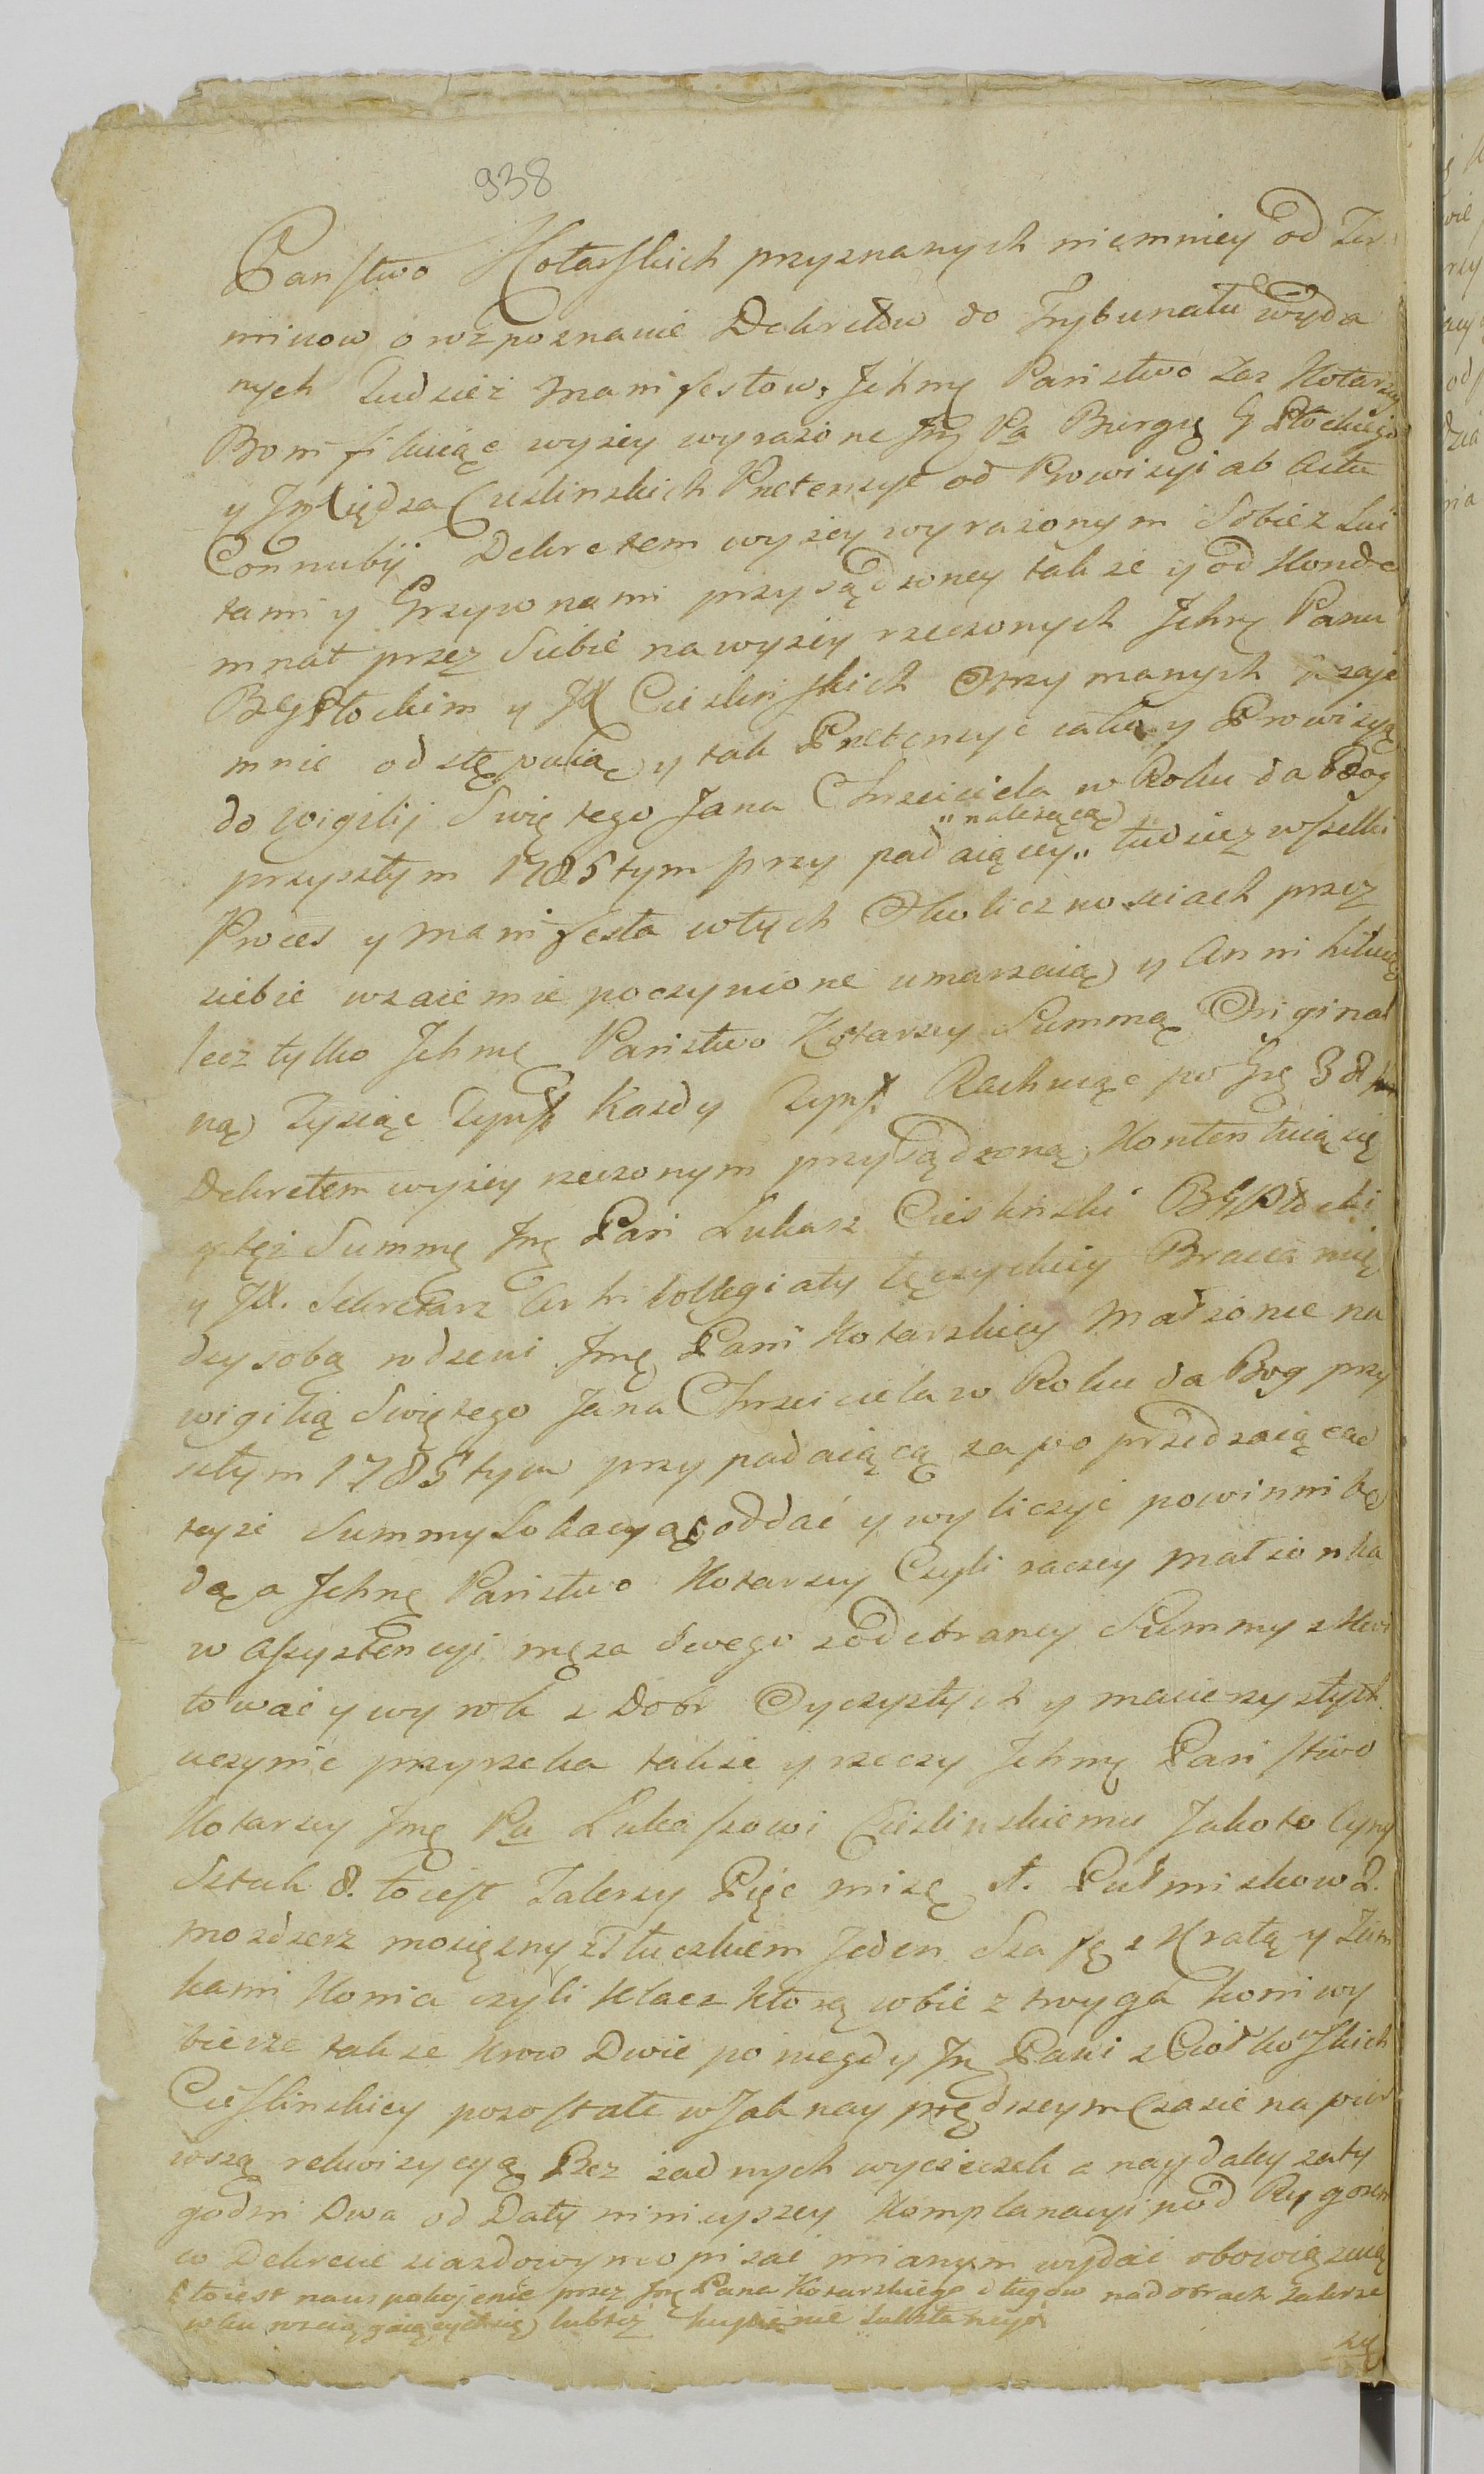 938
Państwo Kotarskich przyznanych niemniey od Ter
minow o rozpoznanie Dekretow do Trybunału wyda
nych Tudzież Manifestow. Ichmę Państwo zas Kotarscy
Bonifikuiąc wyżey wyrażone Jmę Pa Burgę G Płockiego
y Jm Xiędza Cieslinskich Pretensye od Prowizyi ab Actu
Connubÿ Dekretem wyżey wyrażonym Sobie z Luk
tami y Grzywnami przysądzoney także y od Konde
mnat przez Siebie na wyżey rzeczonych Jchmę Panu
BGPłockim y JX Cieslinskich Otrzymanych wzaje
mnie odstępuią, y tak Pretensye całą y Prowizyą
do Wigilij Swiętego Jana Chrzciciela w Roku da Bog
„należącą
przyszłym 1785tym przypadaiącey„ tudziesz wszelki
Proces y manifesta w tych Okolicznosciach przez
siebie wzaiemnie poczynione umarzaią y Annihiluią
lecz tylko Jchmę Państwo Kotarscy Summą Original
ną Tysiąc Tynf. Kazdy Tynf. Rachuiąc po Grę 38
Dekretem wyżey rzeczonym przysądzoną Kontentuią się
y też Summę Jmę Pan Łukasz Ciesliński BGPłocki
y JX. Sekretarz Kollegiaty Łęczyckiey Bracia mię
dzy sobą rodzeni Jmę Pani Kotarskiey Małżonce na
wigilią Swiętego Jana Chrzciciela w Roku da Bog przy
szłym 1785tym przypadaiącą za poprzedzaiącą
teyże Summy Lokacyą oddać y wyliczyć powinni bę
dą a Jchmę Państwo Kotarscy Czyli raczey małżonka
w Assystencyi męża swego z odebraney Summy zkwi
tować y wyrok z Dobr Oyczystych y macierzystych
uczynić przyrzeka także y rzeczy Jchmę Państwo
Kotarscy Jmę Pu Łukaszowi Cieslinskiemu Jako to Cyny
Sztuk 8. to iest Talerzy Pięc misę 1. Pułmiskow 2.
mozdzerz mosięzny z Tłuczkiem Jeden Szafę z Kratą y Zam
kami Konia czyli Klacz ktorą sobie z Koni wy
bierze także krow Dwie po niegdy Jmę Pani z Ciołkowskich
Cieslinskiey pozostałe w Jak nayprędszym Czasie na pier
wszą rekwizycyą Bez żadnych wycieczek a naydaley za ty
godni Dwa od Daty ninieyszey Komplanacyi pod Rygorem
w Dekrecie ziazdowym opisać mianym wydać obowięzuią
to iest na uspokojenie przez Jmę Pana Kotarskiego długow na dobrach Zakrze
wku rozciągaiących się lub też kupienie substancyi
się